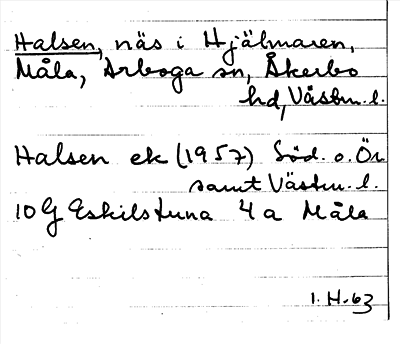 Halsen, näs i Hjälmaren,
Måla, Arboga sn, Åkerbo
hd, Västm. l.
Halsen ek (1957) Söd. o. Ör
samt Västm. l.
10 G Eskilstuna 4 a Måla
1. H. 63